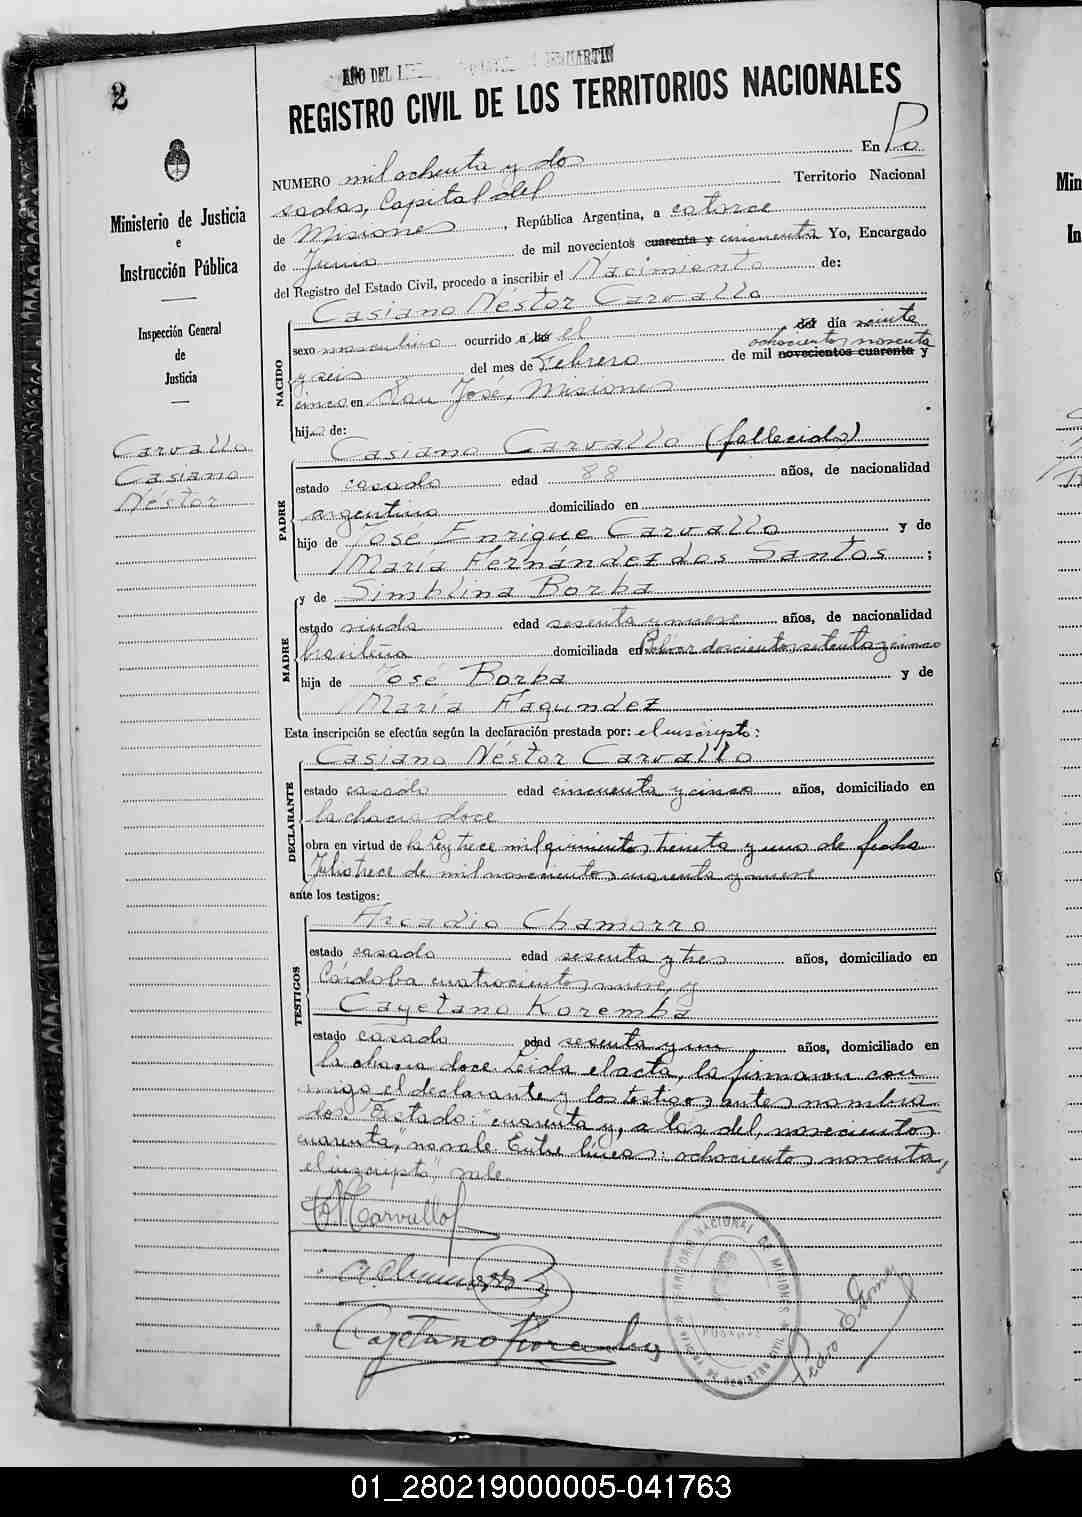 2
AÑO DEL LIBERTADOR GENERAL SAN MARTIN
REGISTRO CIVIL DE LOS TERRITORIOS NACIONALES
Ministerio de Justicia
e
Instrucción Pública
Inspección General
de
Justicia
Carvallo
Casiano
Néstor
NUMERO mil ochenta y dos En Po
sadas, Capital del Territorio Nacional
de Misiones, República Argentina, a catorce
de Junio de mil novecientos cuarenta y cincuenta Yo, Encargado
del Registro del Estado Civil, procedo a inscribir el Nacimiento de:
NACIDO
Casiano Néstor Carvallo
sexo masculino ocurrido a las el del día veinte
ochocientos noventa
y seis del mes de Febrero de mil novecientos cuarenta y
cinco en San José, Misiones
hij de:
PADRE
Casiano Carvallo (fallecido)
estado casado edad 88 años, de nacionalidad
argentino domiciliado en
hijo de José Enrique Carvallo y de
María Fernández dos Santos ;
MADRE
y de Simblina Borba
estado viuda edad sesenta y nueve años, de nacionalidad
brasileña domiciliada en Bolívar doscientos setenta y cinco
hija de José Borba y de
María Fagundez
Esta inscripción se efectúa según la declaración prestada por: el inscripto:
DECLARANTE
Casiano Néstor Carvallo
estado casado edad cincuenta y cinco años, domiciliado en
la chacra doce
obra en virtud de la Ley trece mil quinientos treinta y uno de fecha
Julio trece de mil novecientos cuarenta y nueve
ante los testigos:
TESTIGOS
Arcadio Chamorro
estado casado edad sesenta y tres años, domiciliado en
Córdoba cuatrocientos nueve, y
Cayetano Koremba
estado casado edad sesenta y un años, domiciliado en
la chacra doce. Leida el acta, la firmaron con
migo el declarante y los testigos antes nombra
dos. Testado: "cuarenta y, a las del, novecientos
cuarenta, no vale. Entre líneas: ochocientos noventa,
el inscripto", vale.
Carvallo
A. Chamorro
Cayetano Koremba
TERRITORIO NACIONAL DE MISIONES
POSADAS
OFICINA DE REGISTRO CIVIL
Pedro
01_280219000005-041763